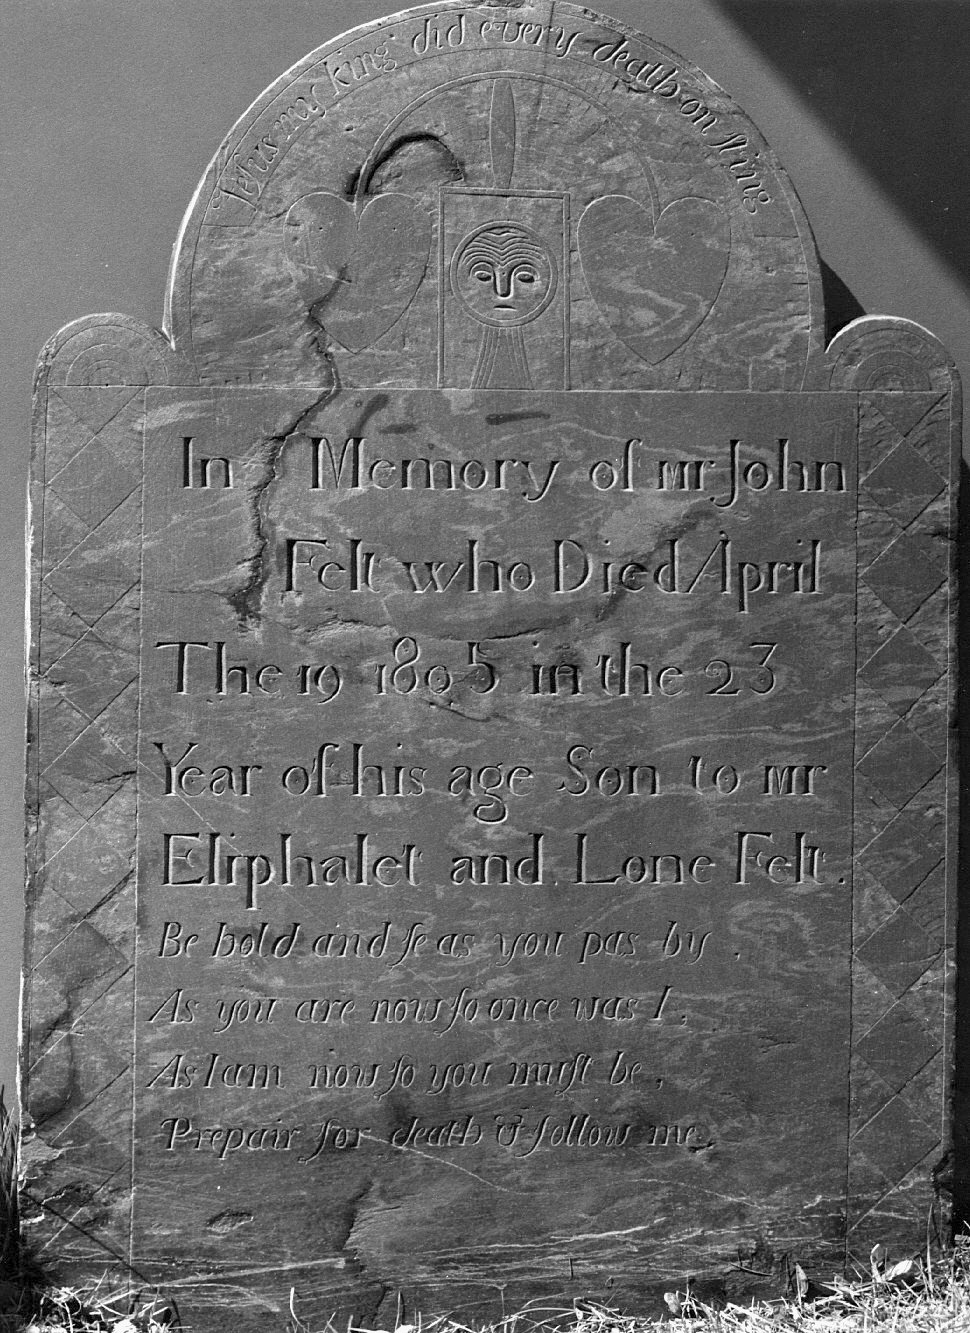 Jesus may king did every death on sting
In Memory of mr John
Felt who Died April
The 19 1805 in the 23
Year of his age Son to mr
Eliphalet and Lone Felt.
Be hold and ſe as you pas by,
As you are now ſo once was I,
As I am now ſo you muſt be,
Prepair for death & follow me.